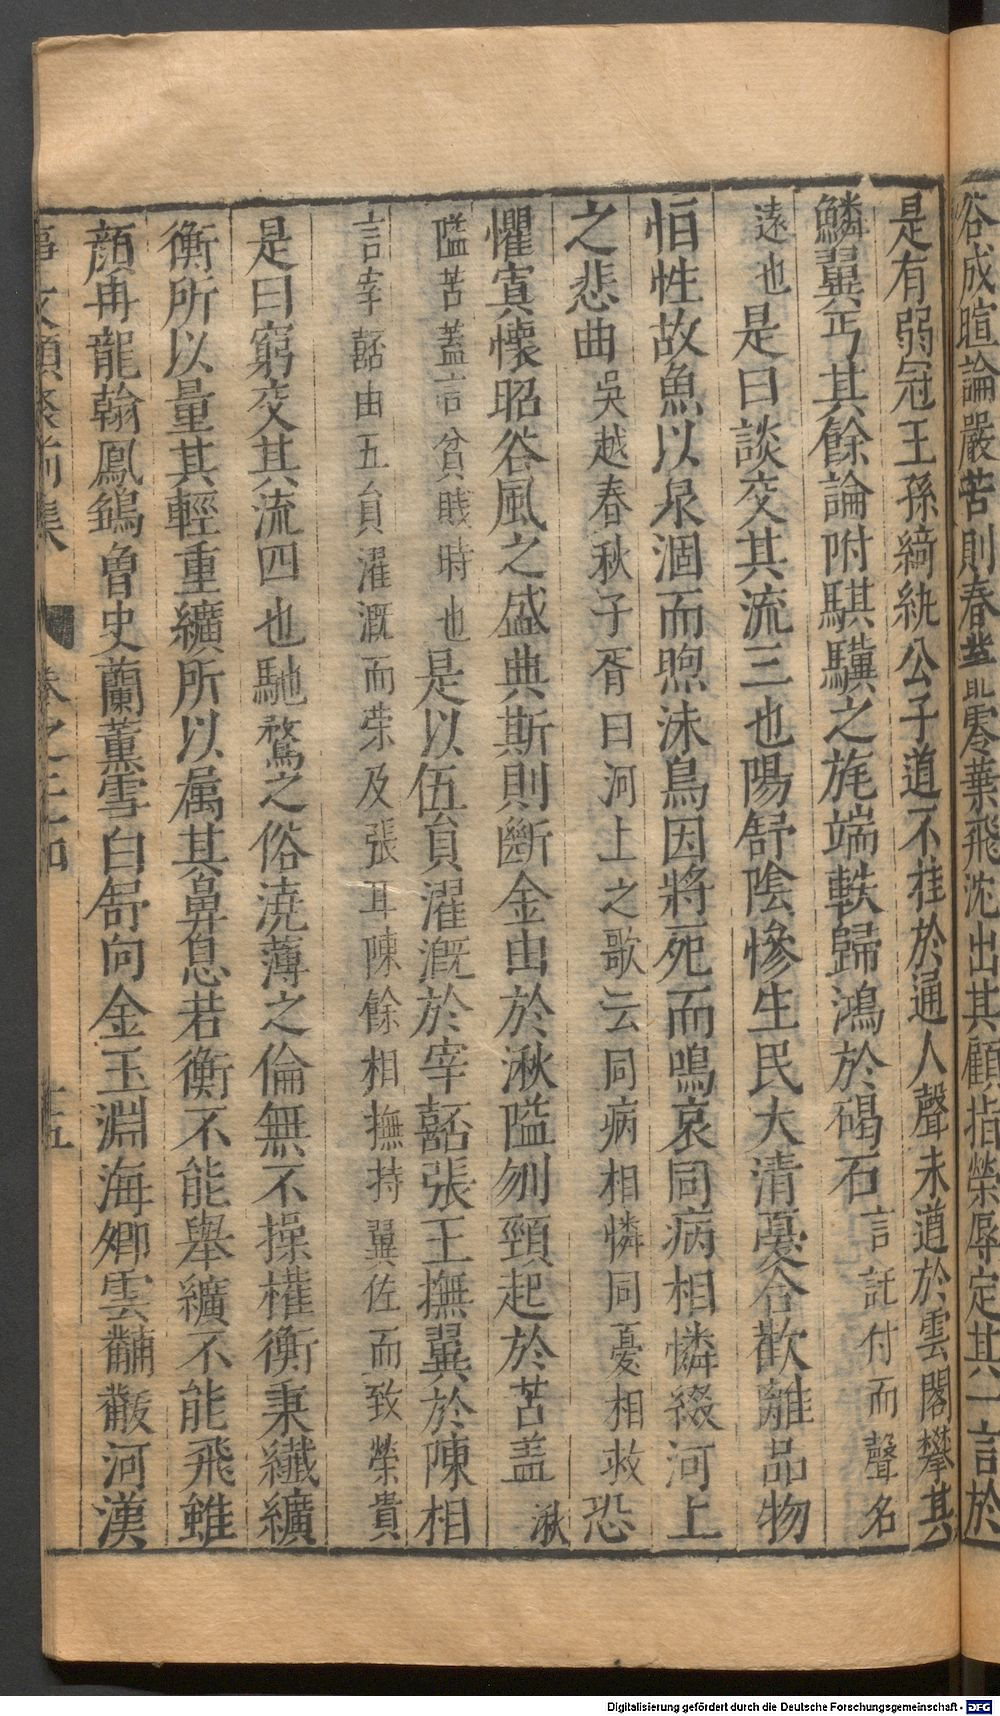 谷成暄論嚴苦則春叢零葉飛沈出其顧指榮辱定其一言於
是有弱冠王孫綺紈公子道不挂於通人聲未遒於雲閣攀其
鱗翼丐其餘論附騏驥之旄端軼歸鴻於碣石言託付而聲名
遠也是曰談交其流三也陽舒陰慘生民大清憂合歡離品物
恒性故魚以泉涸而呴沫鳥因將死而鳴哀同病相憐綴河上
之悲曲吳越春秋子胥曰河上之歌云同病相憐同憂相救恐
懼寘懷昭谷風之盛典斯則斷金由於湫隘刎頸起於苫盖湫
隘苫蓋言貧賤時也是以伍員濯溉於宰嚭張王撫翼於陳相
言宰嚭由五員濯溉而荣及張耳陳餘相撫持翼佐而致榮貴
是曰窮交其流四也馳騖之俗澆薄之倫無不操權衡秉纖纊
衡所以量其輕重纊所以属其鼻息若衡不能舉纊不能飛雖
顔冉龍翰鳳鶵曾史蘭薰雪白舒向金玉淵海卿雲黼黻河漢
事文類聚前集 卷之二十四 十五
Digitalisierung gefördert durch die Deutsche Forschungsgemeinschaft - DFG